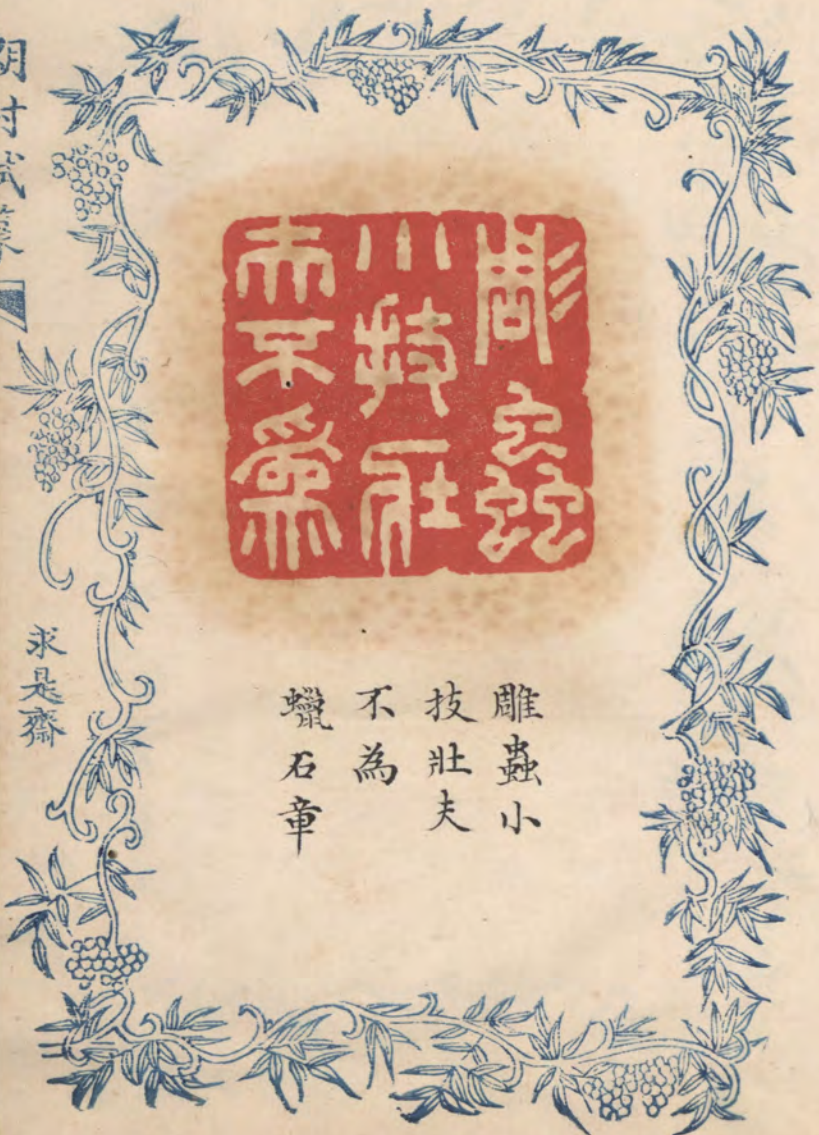 彫蟲
小技壯
夫不為
雕蟲小
技壯夫
不為
蠟石章
求是齋